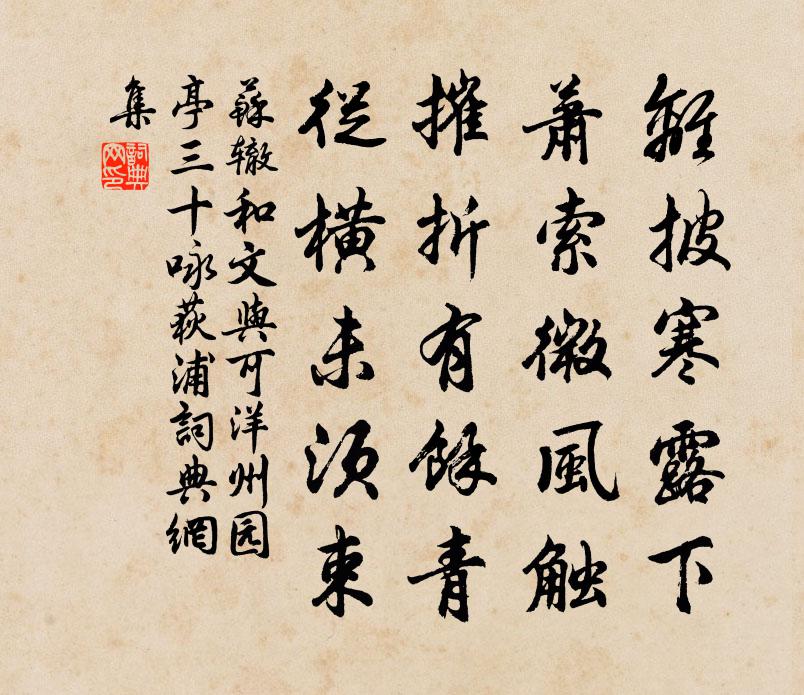 離披寒露下
蕭索微風触
摧折有餘青
從橫未須束
蘇辙和文與可洋州园
亭三十咏荻浦詞典網
集
詞典網印